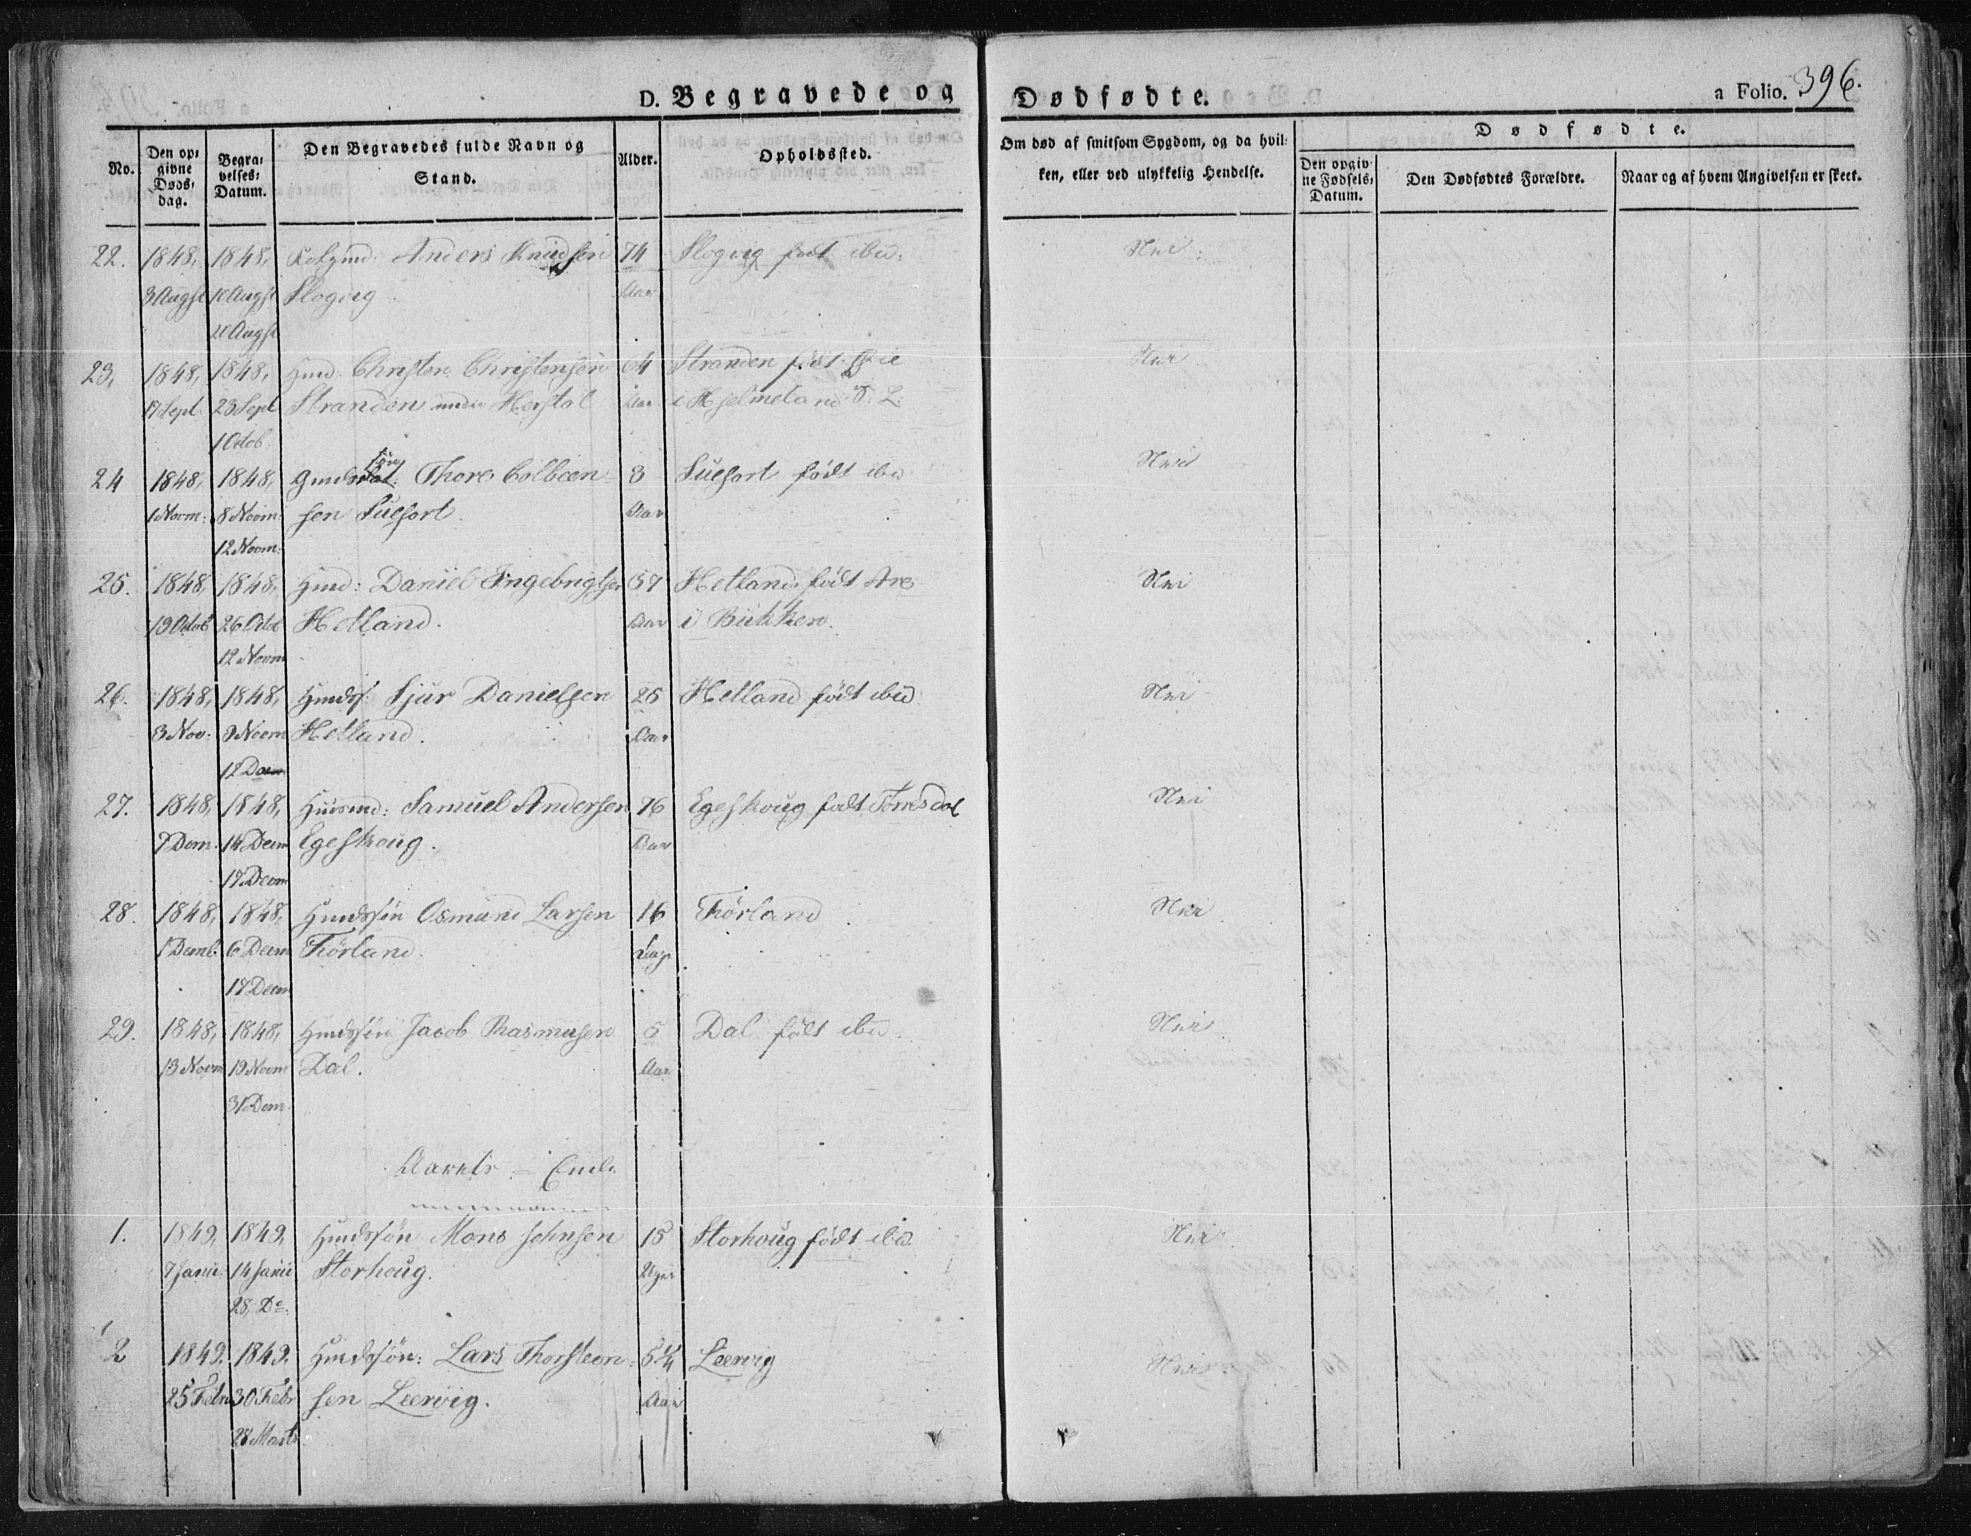 D. Begravede og Dødfødte.
a Folio. 396.
No.
Den opgivne Døds-dag.
Begravelses-Datum.
Den Begravedes fulde Navn og Stand.
Alder.
Opholdssted.
Om død af smitsom Sygdom, og da hvilken, eller ved ulykkelig Hendelse.
Dødfødte.
Den opgivne Fødsels-Datum.
Den Dødfødtes Forældre.
Naar og af hvem Angivelsen er skeet.
22. 1848, 1848, Anders Knudsen 74 Slogvig født ibid. Nei
3 Augst 10 Augst Slogvig Aar
20 Augst
23, 1848, 1848, Christen Christensen 64 Stranden født
17 Sept 23 Sept Stranden under Herstøl Aar i Hjelmeland
1 Octob.
24 1848, 1848, Thore Colbeen- 3 Suefort født ibid Nei
1 Novm: 8 Novm: sen Suefort. Aar
12 Novm:
25. 1848, 1848, Hmd: Daniel Ingebrigtsen 57 Hetland født Are Nei
19 Octob 26 Octob Hetland. Aar i Bukken.
12 Novm
26. 1848, 1848, Hmdss: Sjur Danielsen 25 Hetland født ibid Nei
3 Nov: 9 Novm Hetland. Aar
12
27. 1848, 1848, Huusmd: Samuel Andersen 76 Egeskoug født Tømsdal Nei
7 Decm. 14 Decm Egeskoug. Aar
17 Decm
28. 1848, 1848, Hmdssøn Osmund Larsen 16 Førland Nei
1 Decmb. 6 Decm Førland. Dage
17 Decm
29. 1848, 1848, Hmdssøn Jacob Rasmusen 5 Dal født ibid. Nei
13 Novm 19 Novm Dal. Aar
31 Decm.
Aarets = Ende
1. 1849, 1849, Hmdssøn Mons Johnsen 15 Storhoug født ibid. Nei
7 Janu: 14 Janu Storhoug. Uger
28, Do
2 1849. 1849. Hmdssøn: Lars Thorsteen- 5 1/4 Leervig Nei
25 Febr 30 Febr sen Leervig. Aar
28 Marts